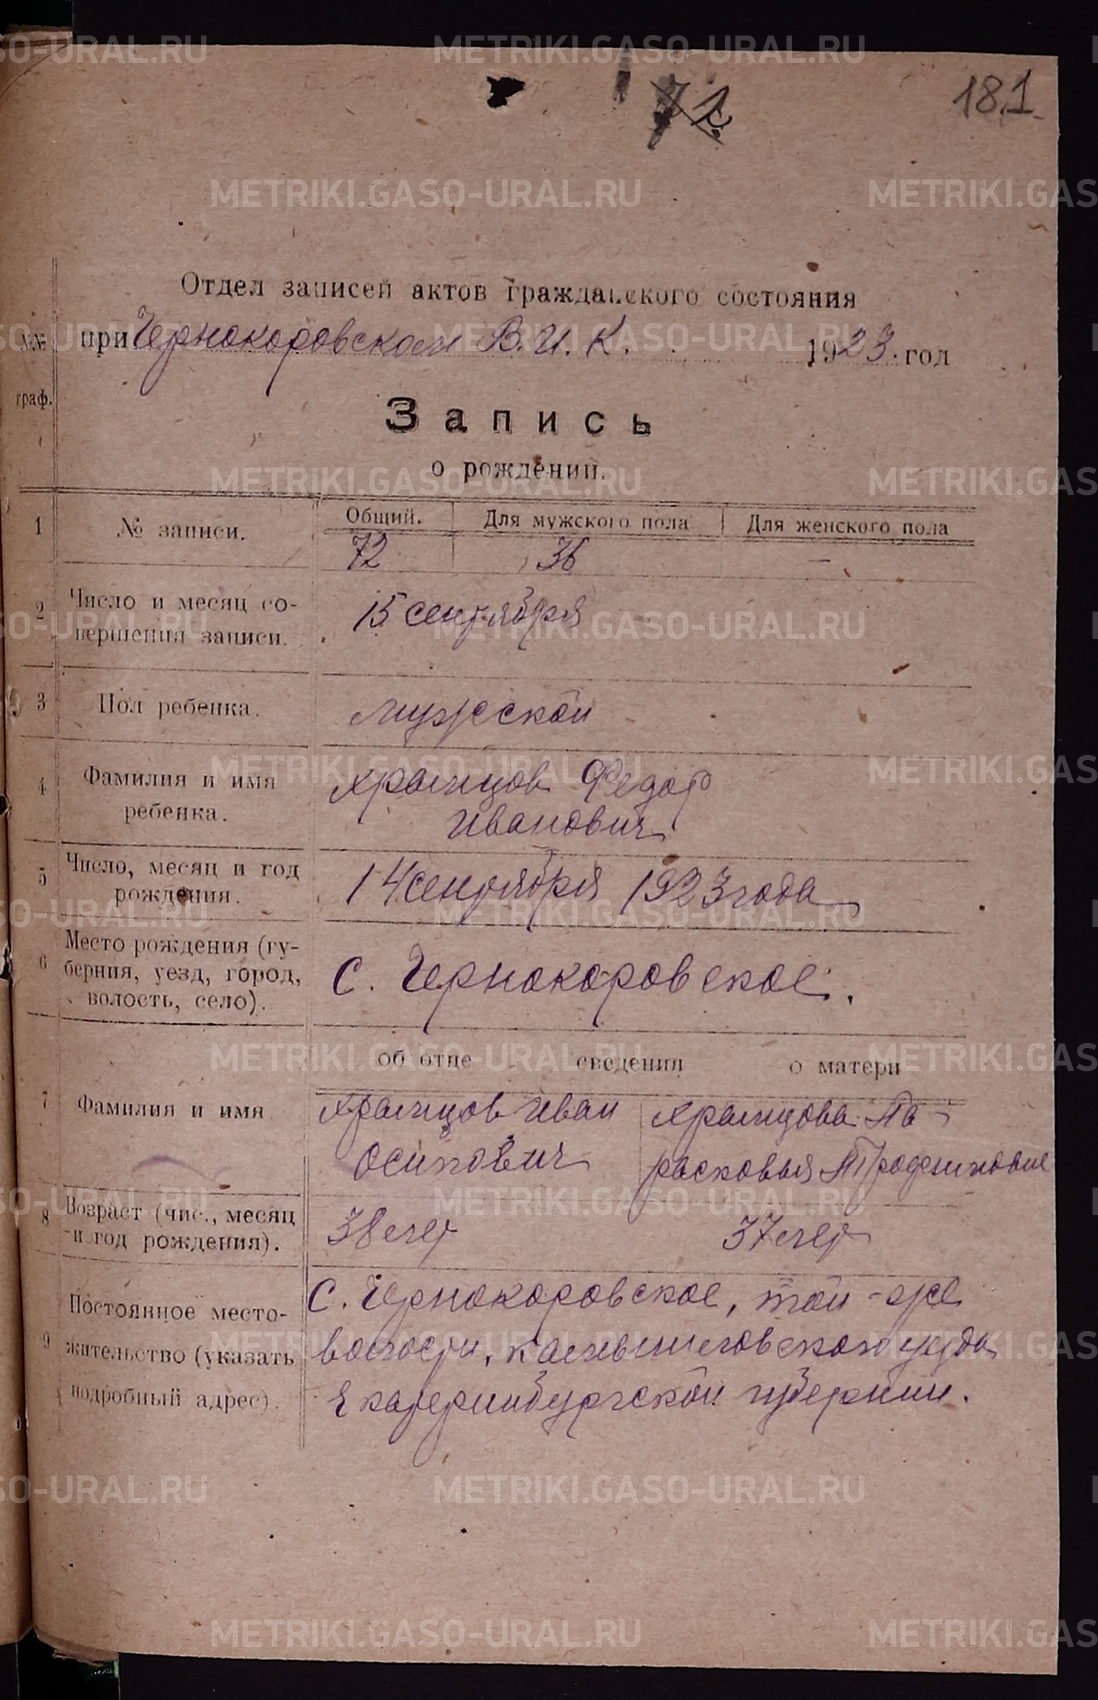 181
Отдел записей актов гражданского состояния
при Чернокоровском В.И.К. 1923 год
№№ граф.
Запись
о рождении.
1 № записи. Общий. Для мужского пола Для женского пола
72 36 –
2 Число и месяц со-
вершения записи. 15 сентября
3 Пол ребенка. мужской
4 Фамилия и имя
ребенка. Храмцов Федор
Иванович
5 Число, месяц и год
рождения. 14 сентября 1923 года
6 Место рождения (гу-
берния, уезд, город,
волость, село). С. Чернокоровское.
об отце сведения о матери
7 Фамилия и имя Храмцов Иван Храмцова Па-
Осипович расковья
8 Возраст (чис., месяц
и год рождения). 38 лет 37 лет
9 Постоянное место-
жительство (указать
подробный адрес).
С. Чернокоровское, той-же
волости, Камышловского уезда
Екатеринбургской губернии.
METRIKI.GASO-URAL.RU